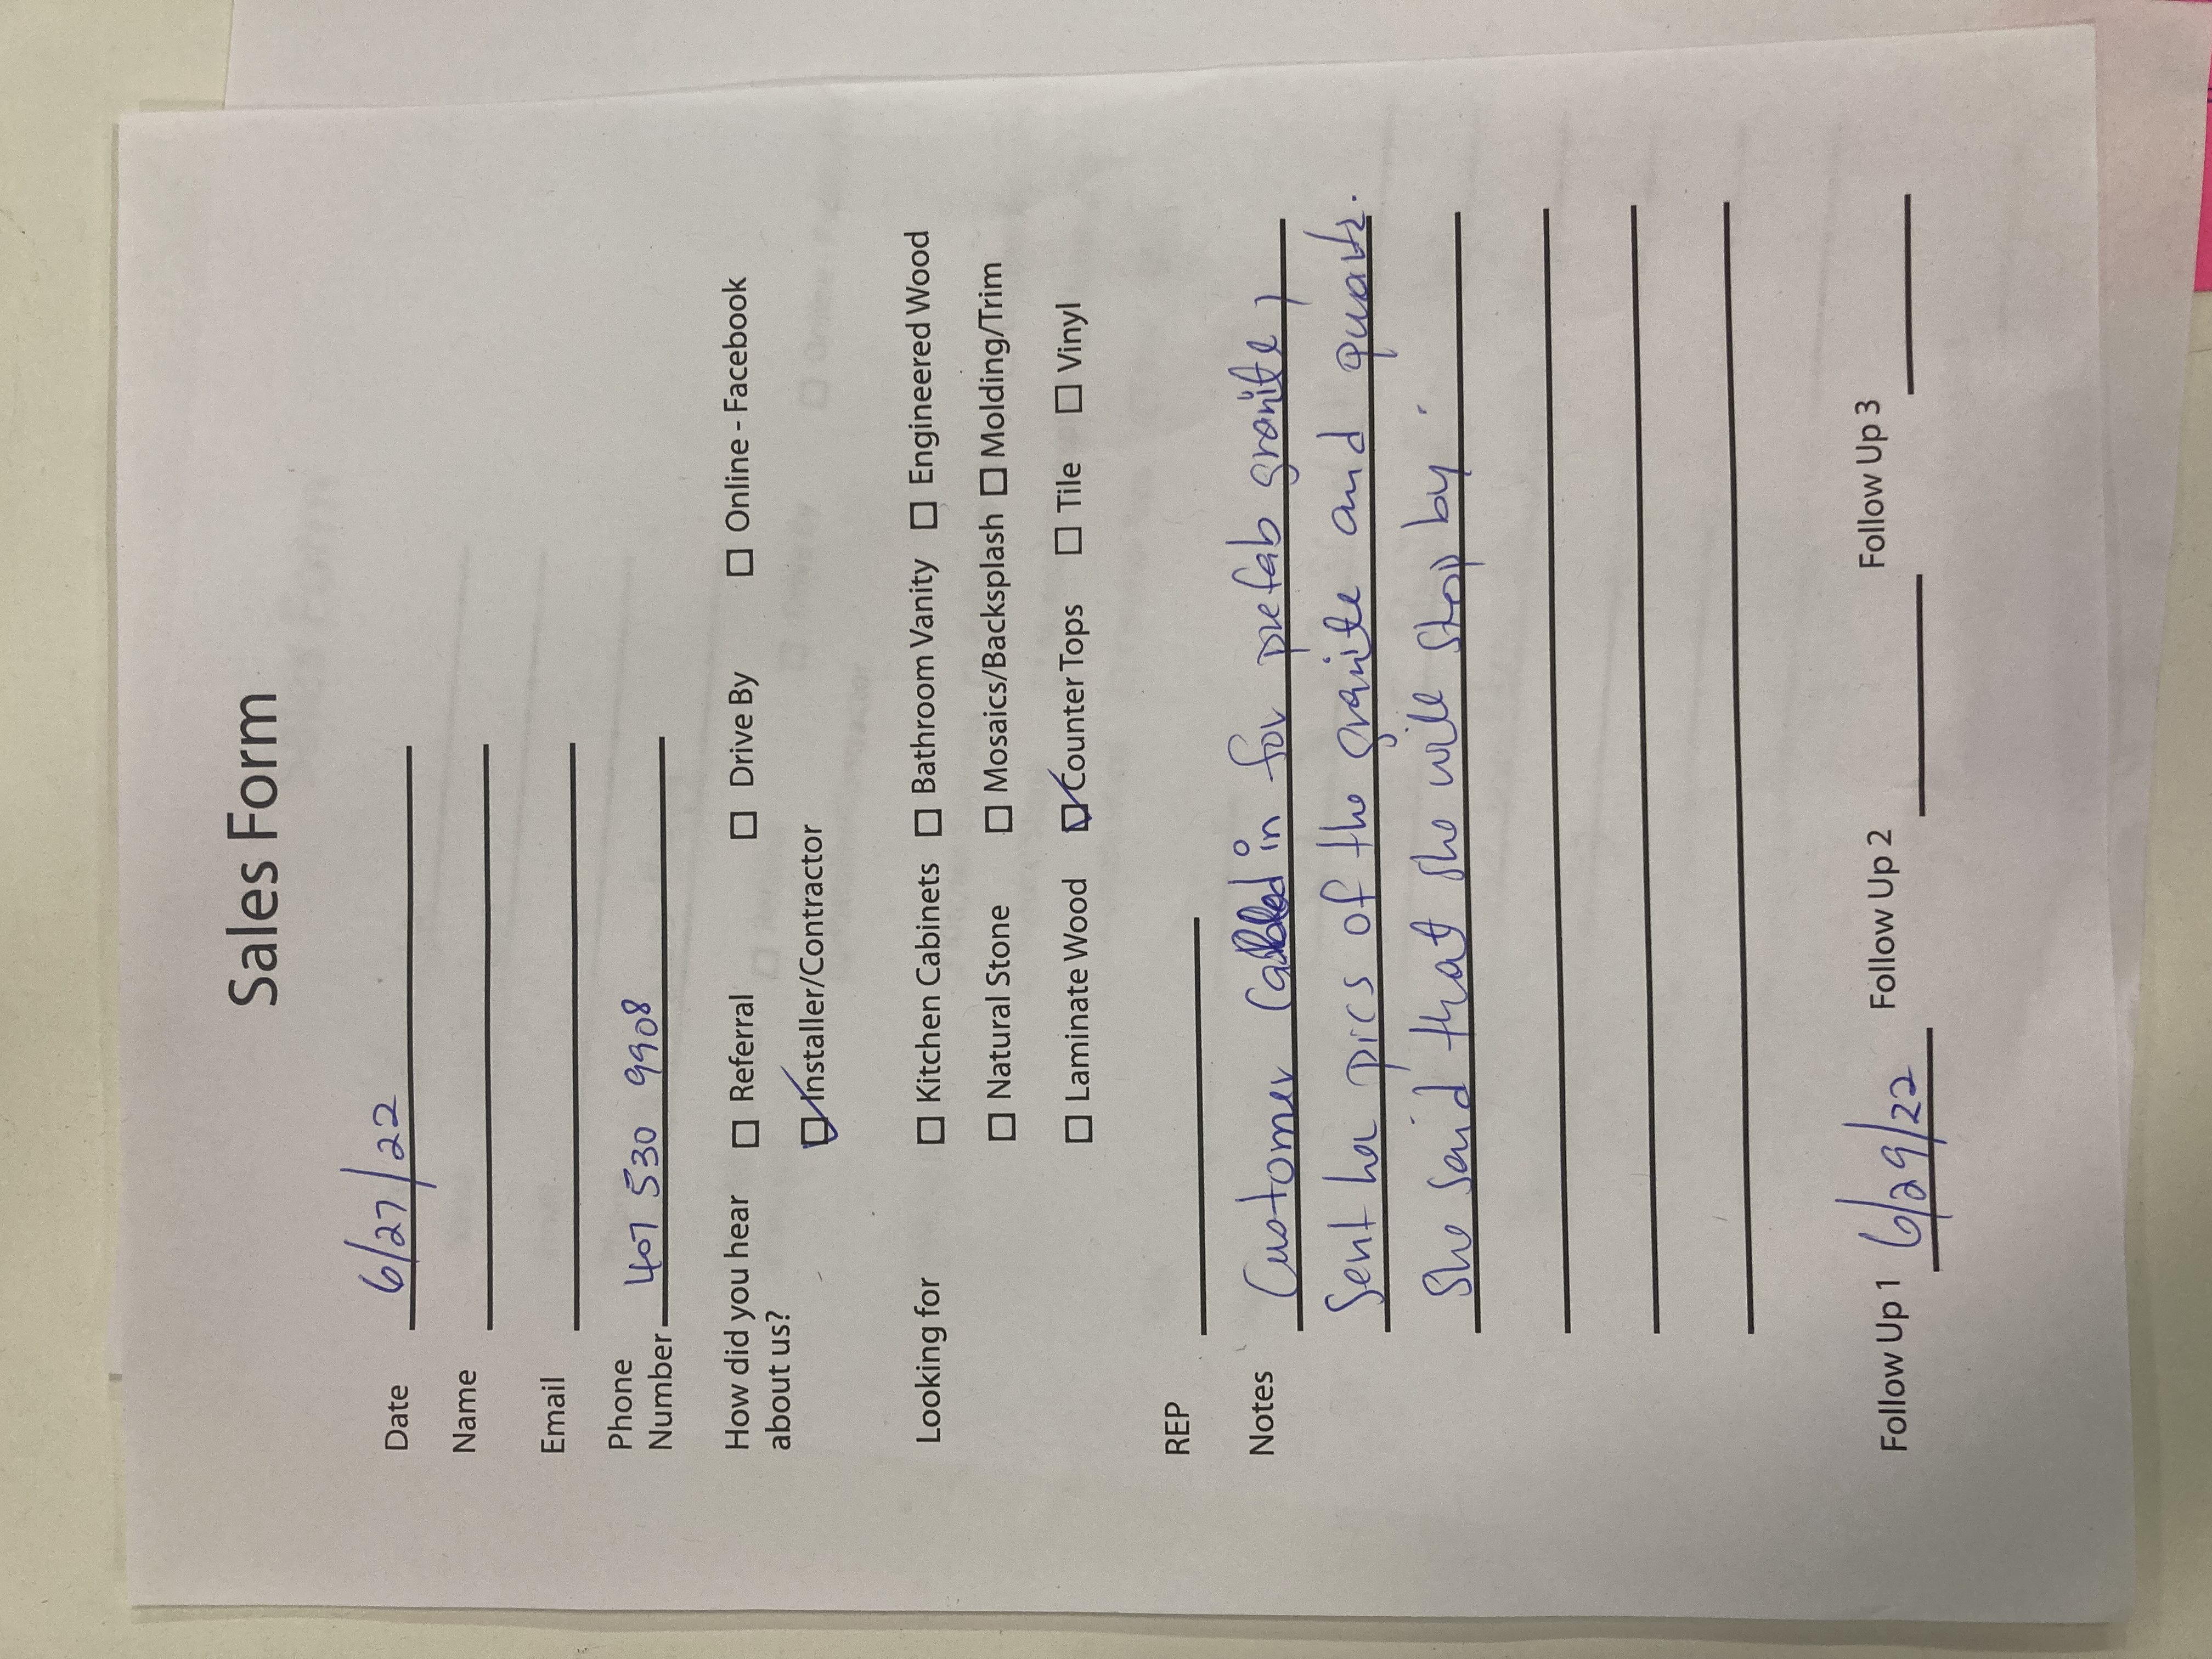 Sales Form
Date 6/27/22
Name
Email
Phone
Number 407 530 9908
How did you hear ☐ Referral ☐ Drive By ☐ Online - Facebook
about us? ☑ Installer/Contractor
Looking for ☐ Kitchen Cabinets ☐ Bathroom Vanity ☐ Engineered Wood
☐ Natural Stone ☐ Mosaics/Backsplash ☐ Molding/Trim
☐ Laminate Wood ☑ Counter Tops ☐ Tile ☐ Vinyl
REP
Notes Customer Called in for prefab granite,
Sent her pics of the granite and quartz.
She said that she will stop by.
Follow Up 1 6/29/22 Follow Up 2 Follow Up 3